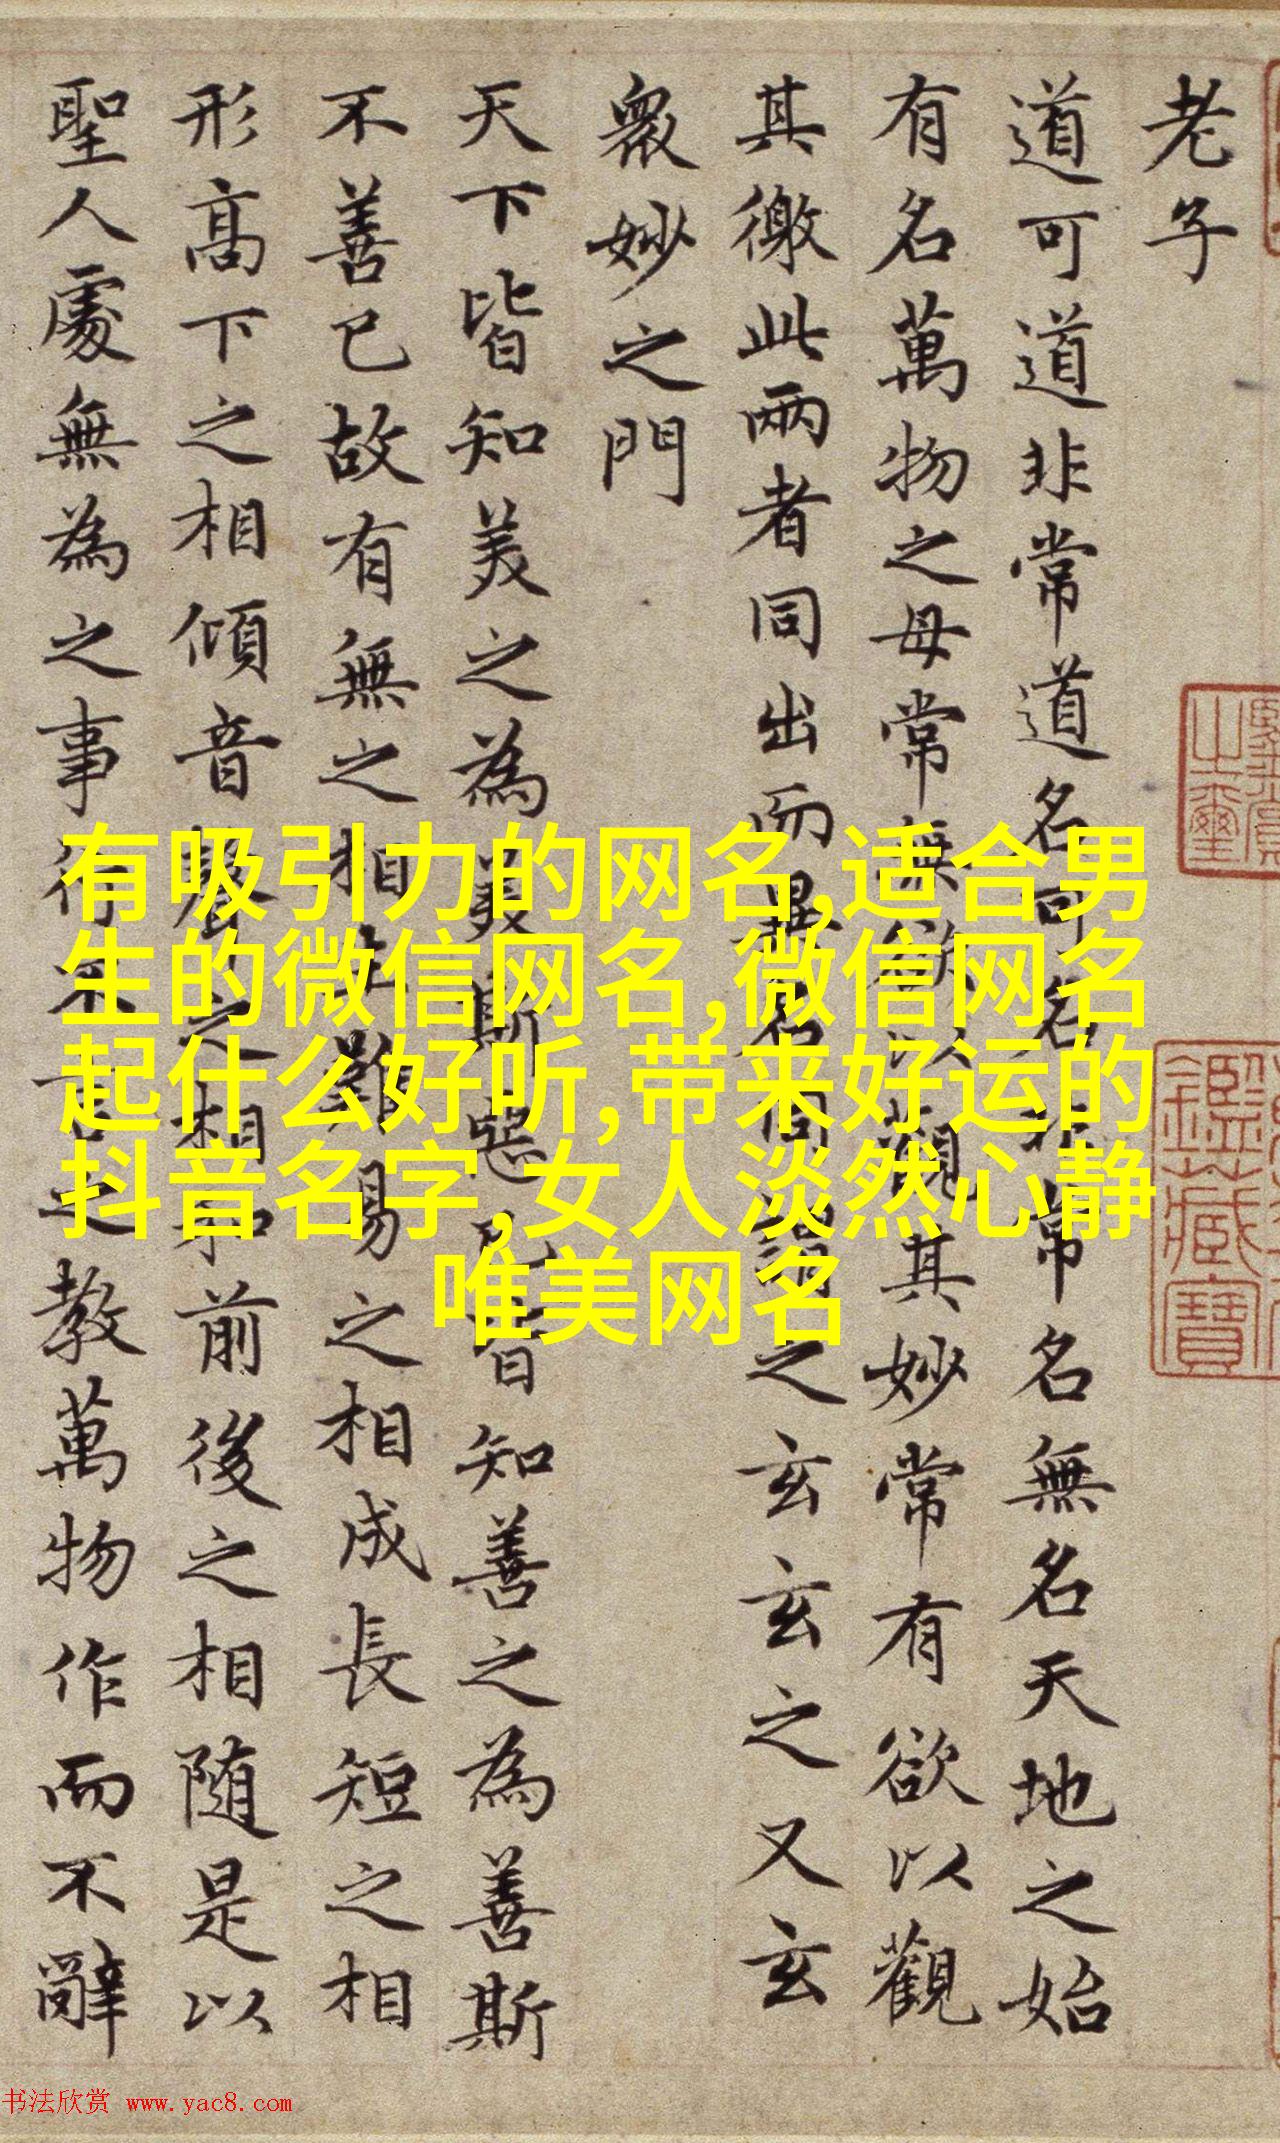 老子
道可道非常道名可名非常名無名天地之始
有名萬物之母常無欲以觀其妙常有欲以觀
其徼此兩者同出而異名同謂之玄玄之又玄
衆妙之門
天下皆知美之為美斯惡已皆知善之為善斯
不善已故有無之相生難易之相成長短之相
形高下之相傾音聲之相和前後之相随是以
聖人處無為之事行不言之教萬物作而不辭
有吸引力的网名,适合男
生的微信网名,微信网名
起什么好听,带来好运的
抖音名字,女人淡然心静
唯美网名
鑑藏寶
书法欣赏 www.yac8.com